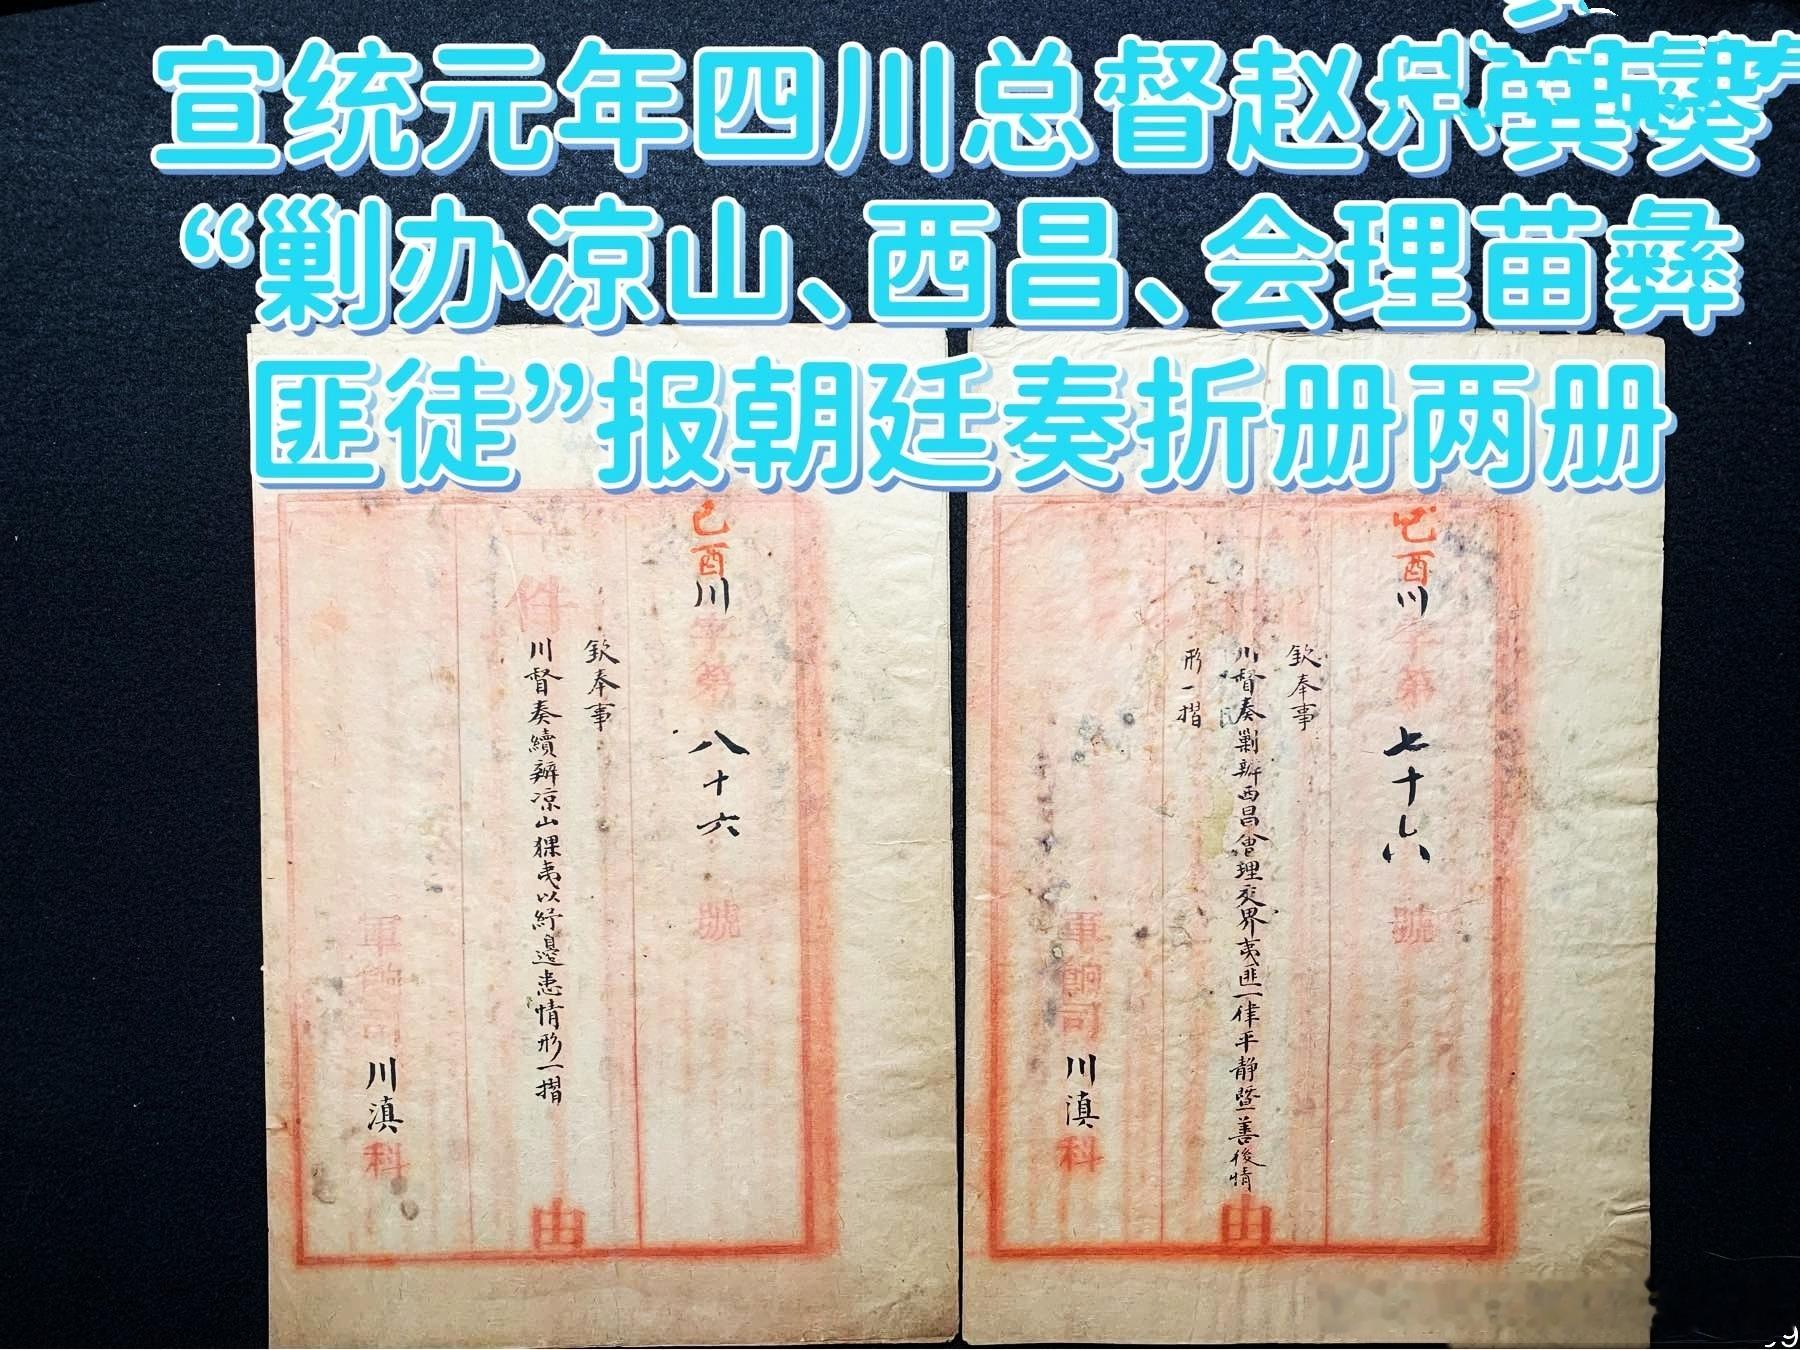 宣统元年四川总督赵
“剿办凉山、西昌、会理苗彝
匪徒”报朝廷奏折册两册
己酉川字第七十六號
欽奉事
川督奏剿辦西昌會理交界夷匪一律平靜暨善後情
形一摺
由
軍餉司川滇科
己酉川字第八十六號
欽奉事
件
川督奏續辦凉山猓夷以紓邊患情形一摺
由
軍餉司川滇科